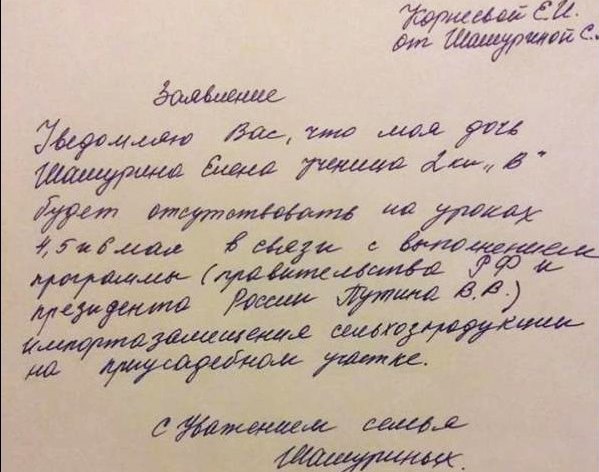 Корневой Е.И.
от Шашуриной С.
Заявление
Уведомляю Вас, что моя дочь
Шашурина Елена ученица 2 кл „В"
будет отсутствовать на уроках
4, 5 и 6 мая в связи с выполнением
программы (правительства РФ и
президента России Путина В.В.)
импортазамещения сельхозпродукции
на приусадебном участке.
С уважением семья
Шашуриных.